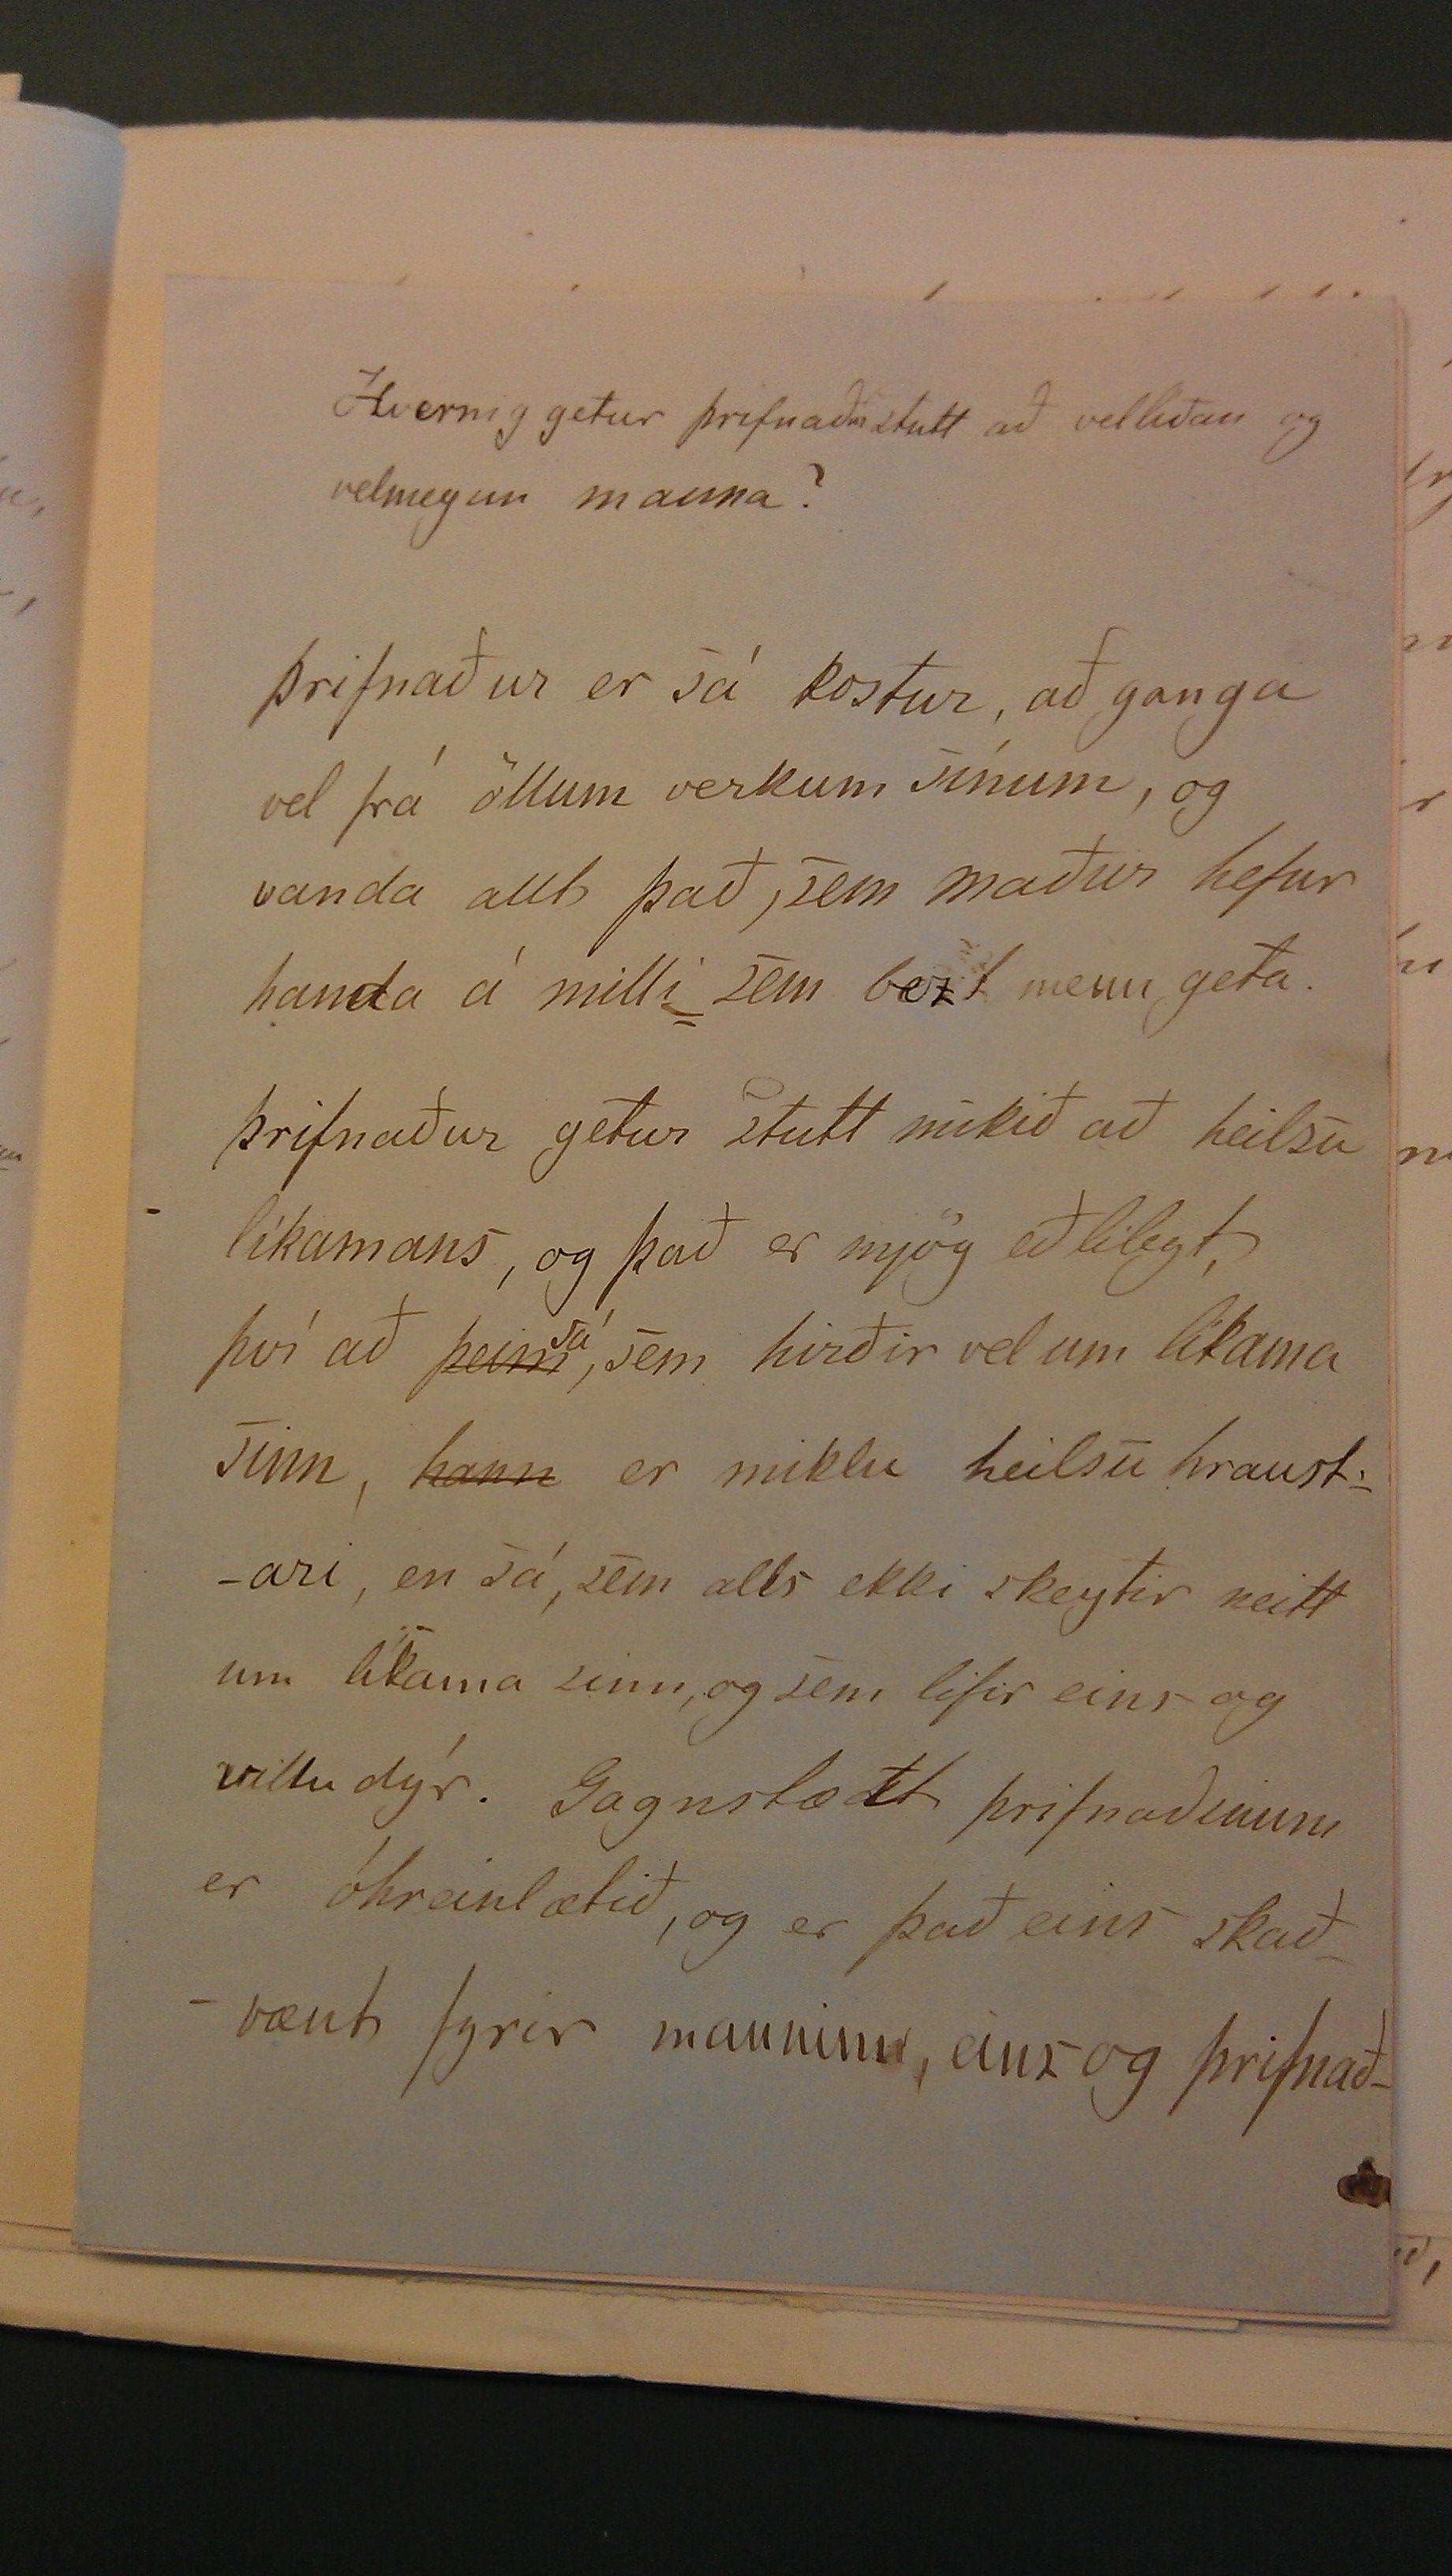 Hvernig getur þrifnaðr stutt að vellíðan og
velmegun manna?
Þrifnaður er sá kostur, að ganga
vel frá öllum verkum sínum, og
vanda allt það, sem maður hefur
handa á milli sem bezt menn geta.
Þrifnaður getur stutt mikið að heilsu
líkamans, og það er mjög eðlilegt,
því að þeim sá, sem hirðir vel um líkama
sinn, hann er miklu heilsu hraust-
-ari, en sá, sem alls ekki skeytir neitt
um líkama sinn, og sem lifir eins og
villudýr. Gagnstætt þrifnaðinum
er óhreinlætið, og er það eins skað-
-vænt fyrir manninn, eins og þrifnað-